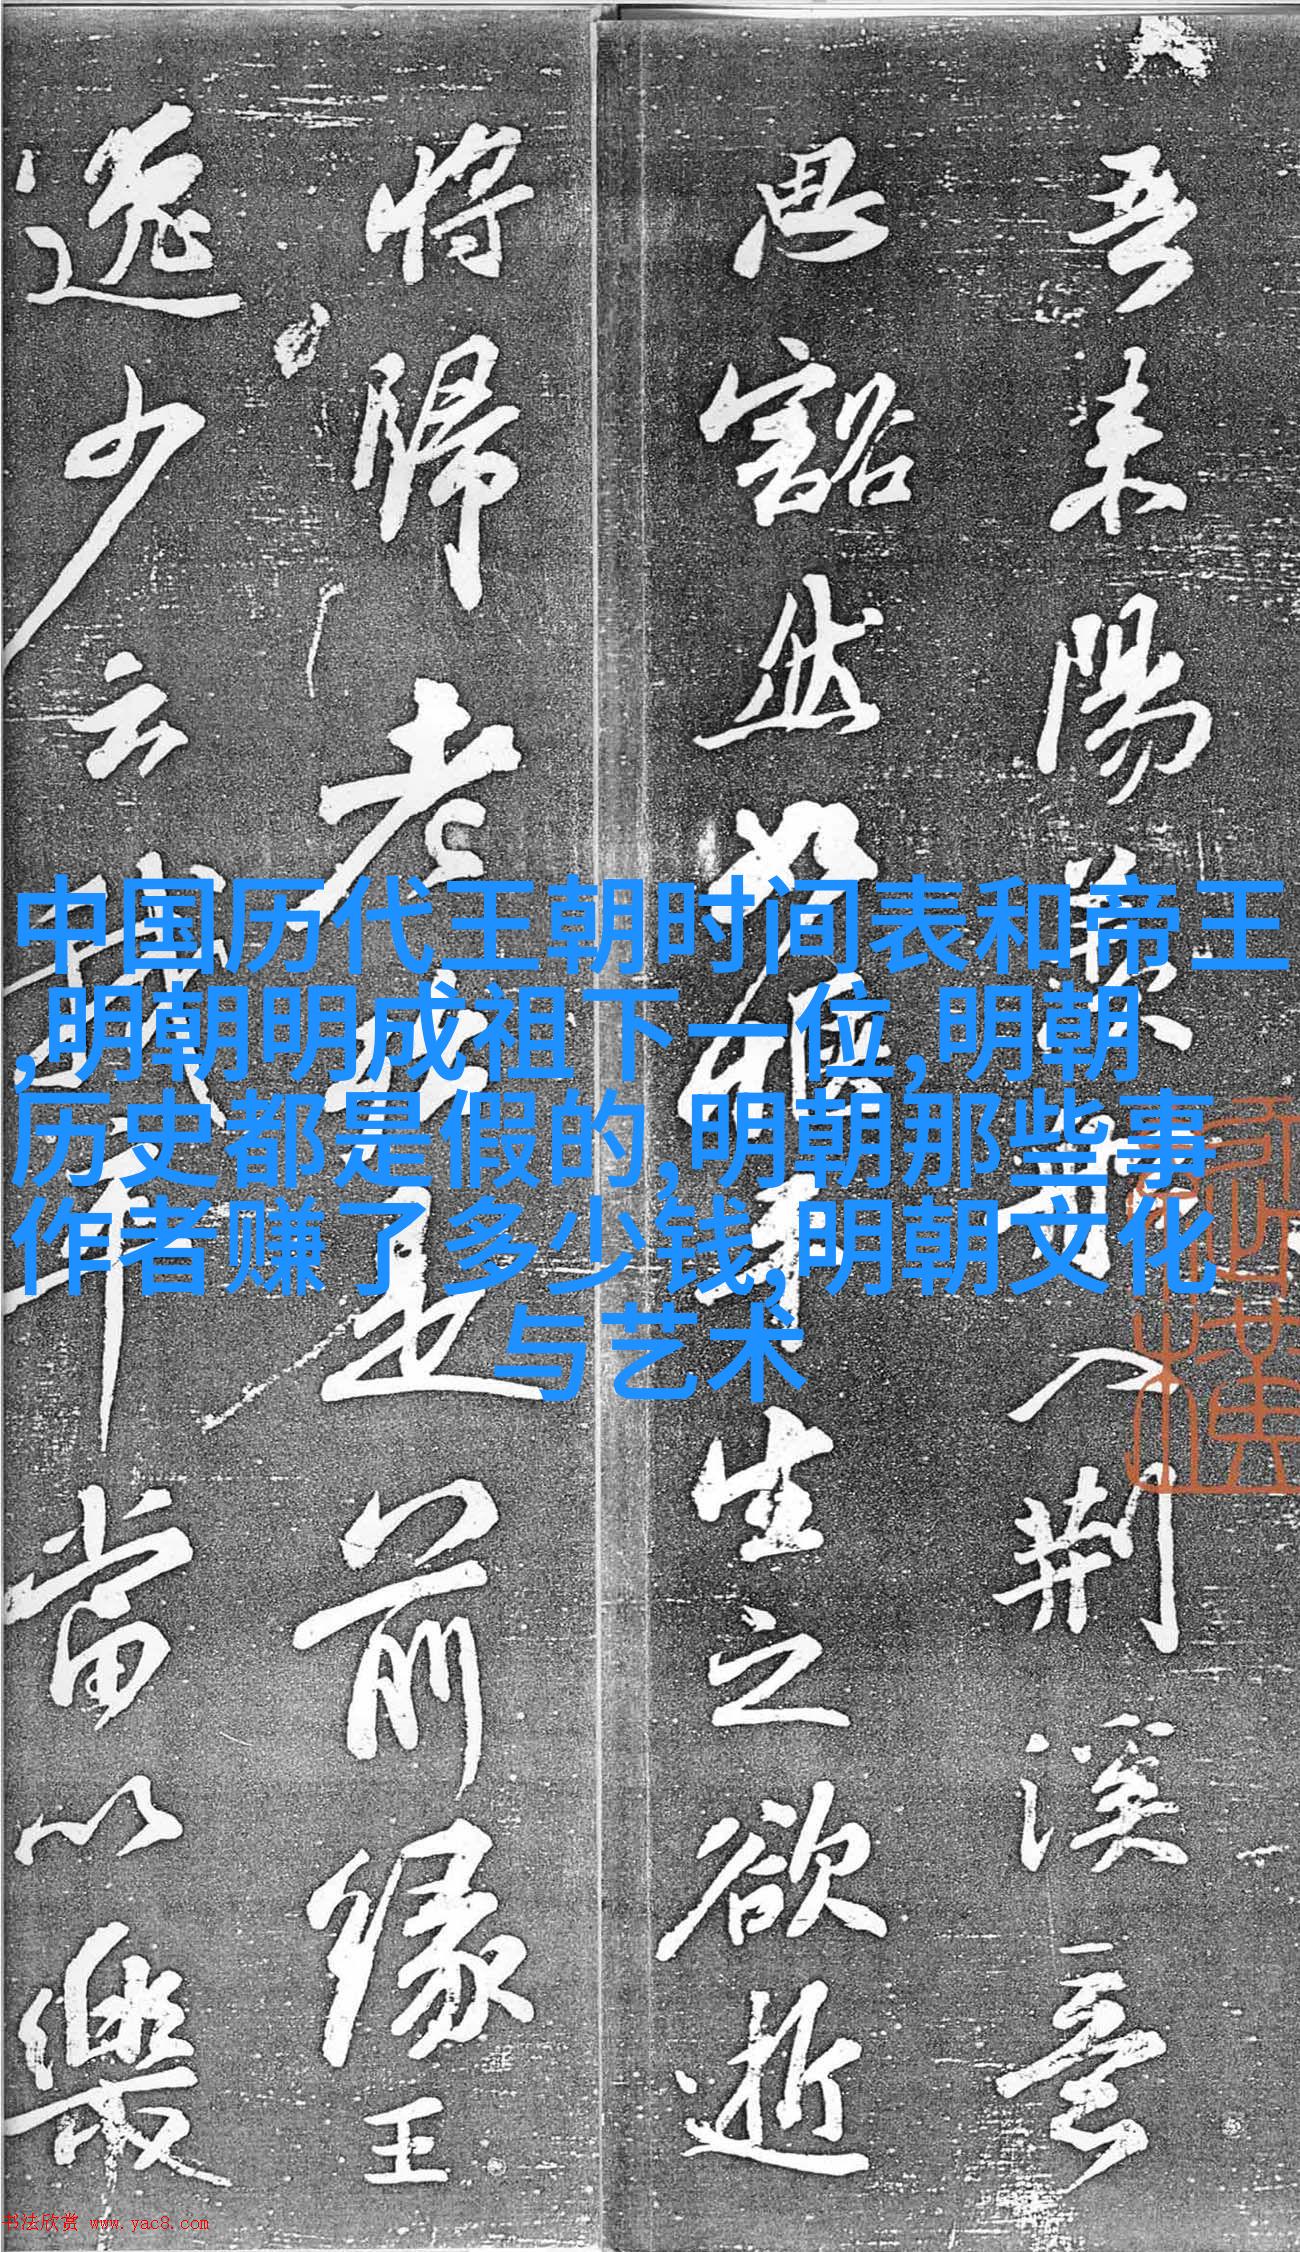 吾来陽羡船入荆溪意
思豁然如惬平生之欲逝
将歸老殆是前缘王
逸少云我卒當以樂
中国历代王朝时间表和帝王
,明朝明成祖下一位,明朝
历史都是假的,明朝那些事
作者赚了多少钱,明朝文化
与艺术
书法欣赏 www.yac8.com